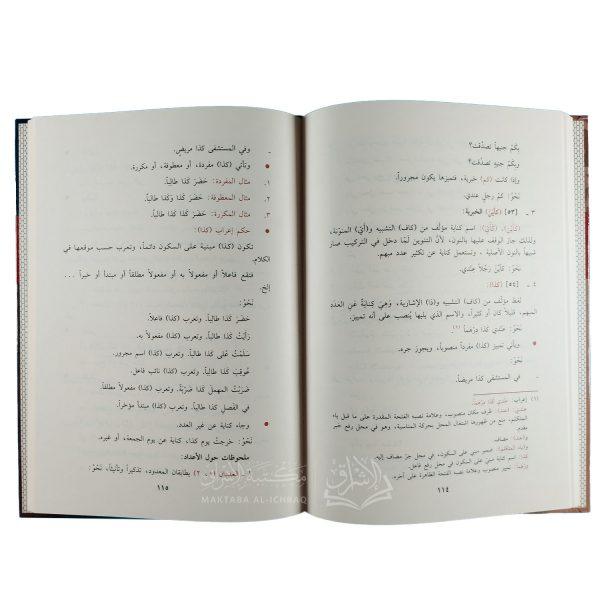 بِكَمْ جنيهاً تصدَّقت؟
وبِكَمْ جنيهٍ تصدَّقت؟
وإذا كانت (كم) خبرية، فتمييزها يكون مجروراً.
نَحْوُ: كَمْ رجلٍ عندي.
٣ - [٥٣] كأيِّنْ الخبرية:
(كأيِّنْ)، (كأيٍّ): اسم كناية مؤلَّف من (كاف) التشبيه و(أيٍّ) المنوّنة،
ولذلك جاز الوقف عليها بالنون، لأنّ التنوين لمّا دخل في التركيب صار
شبيهاً بالنون الأصلية - وتستعمل كناية عن تكثير عدد مبهم.
نحو: كأيِّنْ رَجُلاً عِندي.
٤ - [٥٤] (كذا):
لفظ مؤلف من (كاف) التشبيه و(ذا) الإشارية، وَهِيَ كِنايةٌ عَنْ العَدَدِ
المبهم، قليلاً كان أو كثيراً، والاسم الذي يليها يُنصب على أنه تمييز.
نَحْوُ: عِنْدِي كَذَا دِرْهَماً (١)
● ويأتي تمييز (كذا) مفرداً منصوباً، ويجوز جره.
نَحْوُ:
- في المستشفى كذا مريضاً.
(١) إعراب: عِنْدِي كَذا دِرْهَماً.
عندي: ظرف مكان منصوب، وعلامة نصبه الفتحة المقدرة على ما قبل ياء
المتكلم، منع من ظهورها اشتغال المحل بحركة المناسبة، وهو في محل رفع خبر
مقدم.
(عند): مضاف.
(وياء المتكلم): ضمير مبني على السكون، في محل جرّ مضاف إليه.
كذا: اسم كناية مبني على السكون في محل رفع
تمييز منصوب وعلامة نصبه الفتحة الظاهرة على آخره.
١١٤
- وفي المستشفى كذا مريضٍ.
● وتأتي (كذا) مفردة، أو معطوفة، أو مكررة.
١. مثال المفردة: حَضَرَ كَذَا طالباً.
٢. مثال المعطوفة: حَضَرَ كَذَا وَكَذَا طالباً.
٣. مثال المكررة: حَضَرَ كَذَا كَذَا طالباً.
● حكم إعراب (كذا):
تكون (كذا) مبنية على السكون دائماً، وتعرب حسب موقعها في
الكلام.
فتقع فاعلاً أو مفعولاً به أو مفعولاً مطلقاً أو مبتدأ أو خبراً ...
إلخ.
نَحْوُ:
حَضَرَ كَذَا طالباً. وتعرب (كذا) فاعلاً.
رَأَيْتُ كَذَا طالباً. وتعرب (كذا) مفعولاً به.
سَلَّمْتُ عَلَى كَذَا طالباً. وتعرب (كذا) اسم مجرور.
عُوقِبَ كَذَا طالباً. وتعرب (كذا) نائب فاعل.
ضَرَبْتُ المهمل كَذَا ضَرْبَةً. وتعرب (كذا) مفعولاً مطلقاً.
في الفَصْلِ كَذَا طالباً. وتعرب (كذا) مبتدأ مؤخراً.
● وجاء كناية عن غير العدد.
نَحْوُ: خرجتُ يوم كذا، كناية عن يوم الجمعة، أو غيره.
ملحوظات حول الأعداد:
١ - العددان (١، ٢) يطابقان المعدود، تذكيراً وتأنيثاً، نَحْوُ:
١١٥
مكتبة الإشراق
MAKTABA AL-ICHRAQ